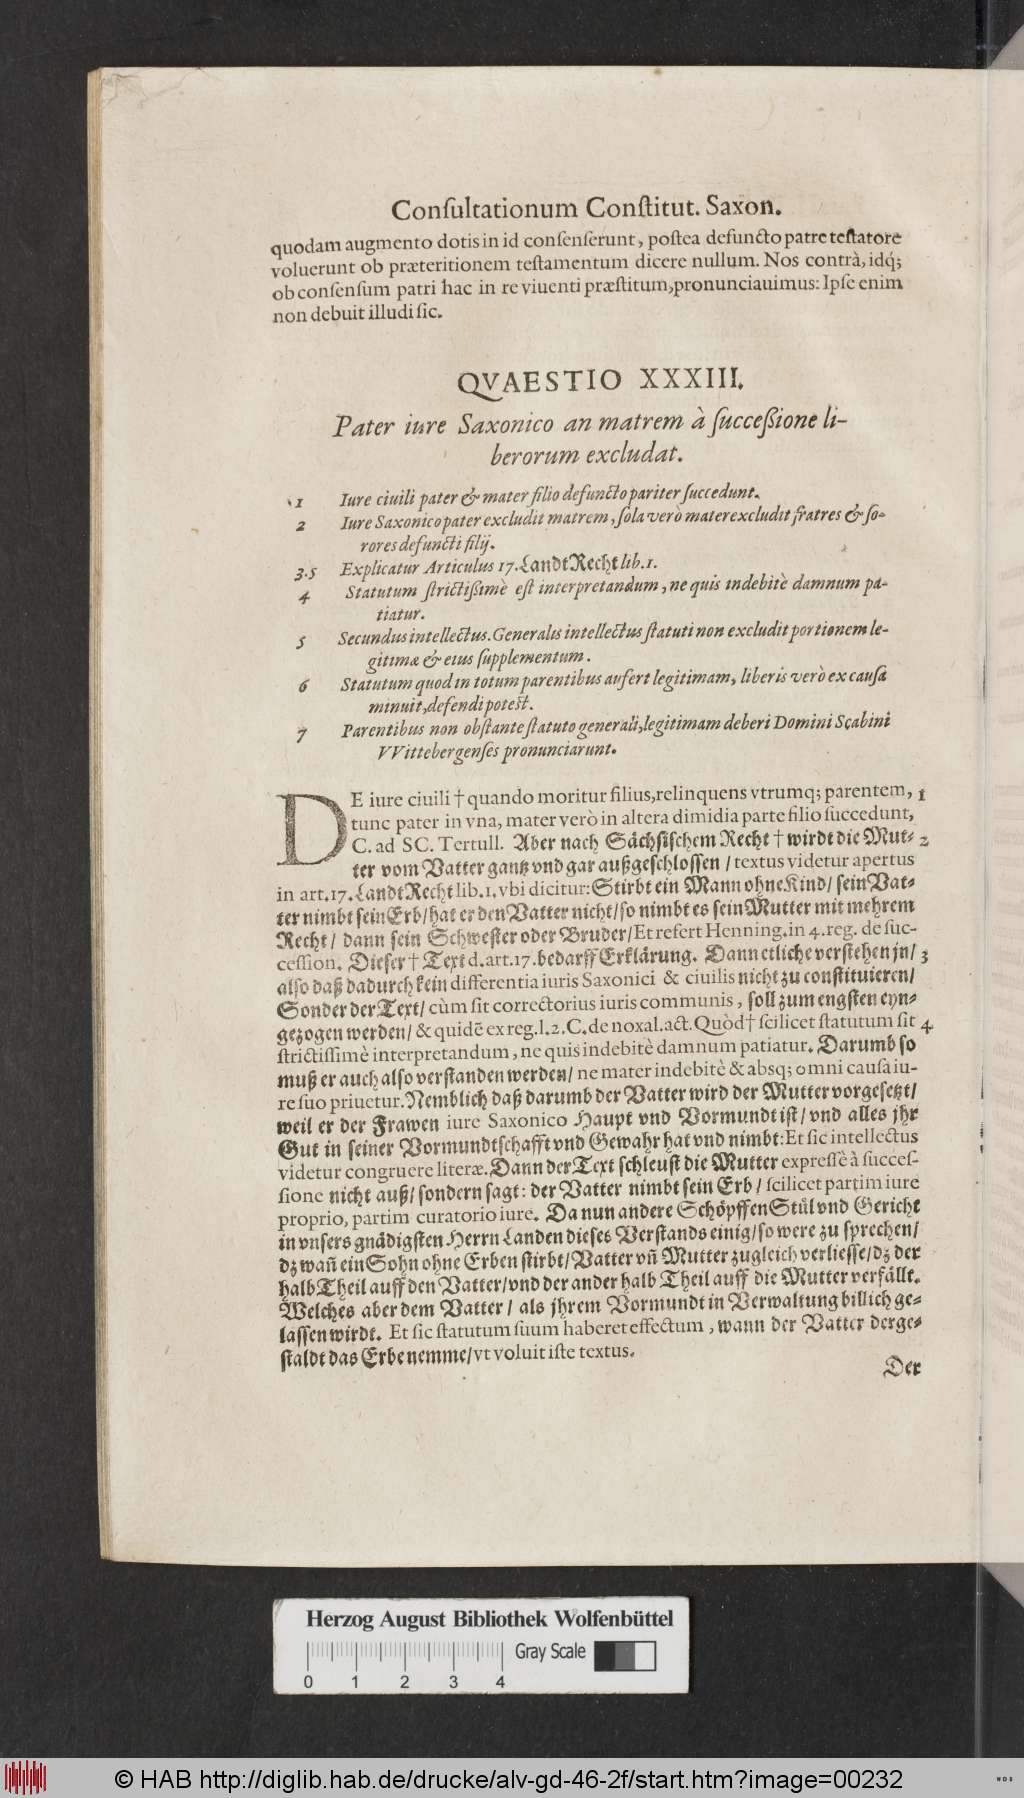 Conſultationum Conſtitut. Saxon.
quodam augmento dotis in id conſenſerunt, poſtea defuncto patre teſtatore
voluerunt ob præteritionem teſtamentum dicere nullum. Nos contrà, idq́;
ob conſenſum patri hac in re viuenti præſtitum, pronunciauimus: Ipſe enim
non debuit illudi ſic.
QVAESTIO XXXIII.
Pater iure Saxonico an matrem à ſucceßione li-
berorum excludat.
1 Iure ciuili pater & mater filio defuncto pariter ſuccedunt.
2 Iure Saxonico pater excludit matrem, ſola verò mater excludit fratres & ſo-
rores defuncti filij.
3.5 Explicatur Articulus 17. LandtRecht lib. 1.
4 Statutum ſtrictißimè eſt interpretandum, ne quis indebitè damnum pa-
tiatur.
5 Secundus intellectus. Generalis intellectus ſtatuti non excludit portionem le-
gitimæ & eius ſupplementum.
6 Statutum quod in totum parentibus aufert legitimam, liberis verò ex cauſa
minuit, defendi poteſt.
7 Parentibus non obſtante ſtatuto generali, legitimam deberi Domini Scabini
VVittebergenſes pronunciarunt.
DE iure ciuili † quando moritur filius, relinquens vtrumq; parentem, 1
tunc pater in vna, mater verò in altera dimidia parte filio ſuccedunt,
C. ad SC. Tertull. Aber nach Sächſiſchem Recht † wirdt die Mut- 2
ter vom Vatter gantz vnd gar außgeſchloſſen / textus videtur apertus
in art. 17. LandtRecht lib. 1. vbi dicitur: Stirbt ein Mann ohne Kind / ſein Vat-
ter nimbt ſein Erb / hat er den Vatter nicht / ſo nimbt es ſein Mutter mit mehrem
Recht / dann ſein Schweſter oder Bruder / Et refert Henning. in 4. reg. de ſuc-
ceſſion. Dieſer † Text d. art. 17. bedarff Erklärung. Dann etliche verſtehen jn / 3
alſo daß dadurch kein differentia iuris Saxonici & ciuilis nicht zu conſtituieren /
Sonder der Text / cùm ſit correctorius iuris communis, ſoll zum engſten eyn-
gezogen werden / & quidē ex reg. l. 2. C. de noxal. act. Quòd † ſcilicet ſtatutum ſit 4
ſtrictiſſimè interpretandum, ne quis indebitè damnum patiatur. Darumb ſo
muß er auch alſo verſtanden werden / ne mater indebitè & absq; omni cauſa iu-
re ſuo priuetur. Nemblich daß darumb der Vatter wird der Mutter vorgeſetzt /
weil er der Frawen iure Saxonico Haupt vnd Vormundt iſt / vnd alles jhr
Gut in ſeiner Vormundtſchafft vnd Gewahr hat vnd nimbt: Et ſic intellectus
videtur congruere literæ. Dann der Text ſchleuſt die Mutter expreſſè à ſucceſ-
ſione nicht auß / ſondern ſagt: der Vatter nimbt ſein Erb / ſcilicet partim iure
proprio, partim curatorio iure. Da nun andere Schöpffen Stül vnd Gericht
in vnſers gnädigſten Herrn Landen dieſes Verſtands einig / ſo were zu ſprechen /
dz wañ ein Sohn ohne Erben ſtirbt / Vatter vñ Mutter zugleich verlieſſe / dz der
halb Theil auff den Vatter / vnd der ander halb Theil auff die Mutter verfällt.
Welches aber dem Vatter / als jhrem Vormundt in Verwaltung billich ge-
laſſen wirdt. Et ſic ſtatutum ſuum haberet effectum, wann der Vatter derge-
ſtaldt das Erbe nemme / vt voluit iſte textus.
Der
Herzog August Bibliothek Wolfenbüttel
Gray Scale
0 1 2 3 4
© HAB http://diglib.hab.de/drucke/alv-gd-46-2f/start.htm?image=00232